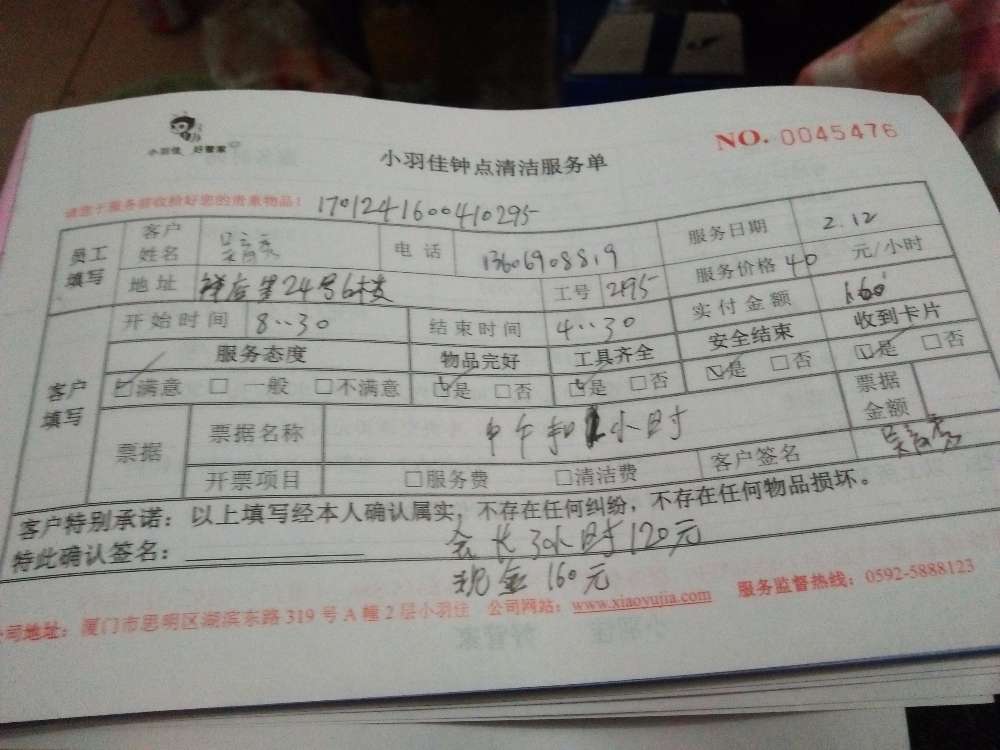 小羽佳 好管家
小羽佳钟点清洁服务单
NO. 0045476
请您于服务前收拾好您的贵重物品！ 1701241600410295
员工填写 客户姓名 电话 13606908819 服务日期 2.12
地址 后 24号6楼 工号 2195 服务价格 40 元/小时
客户填写 开始时间 8:30 结束时间 4:30 实付金额 160
服务态度 物品完好 工具齐全 安全结束 收到卡片
☑满意 □一般 □不满意 ☑是 □否 ☑是 □否 ☑是 □否 ☑是 □否
票据 票据名称 中午 小时 票据金额
开票项目 □服务费 □清洁费 客户签名
客户特别承诺：以上填写经本人确认属实，不存在任何纠纷，不存在任何物品损坏。
特此确认签名： 会长3小时120元
现金160元
公司地址：厦门市思明区湖滨东路319号A幢2层小羽佳 公司网站：www.xiaoyujia.com 服务监督热线：0592-5888123